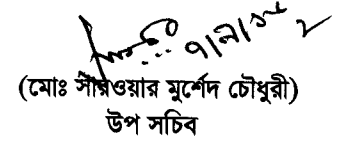 (মোঃ সারওয়ার মুর্শেদ চৌধুরী)
উপ সচিব